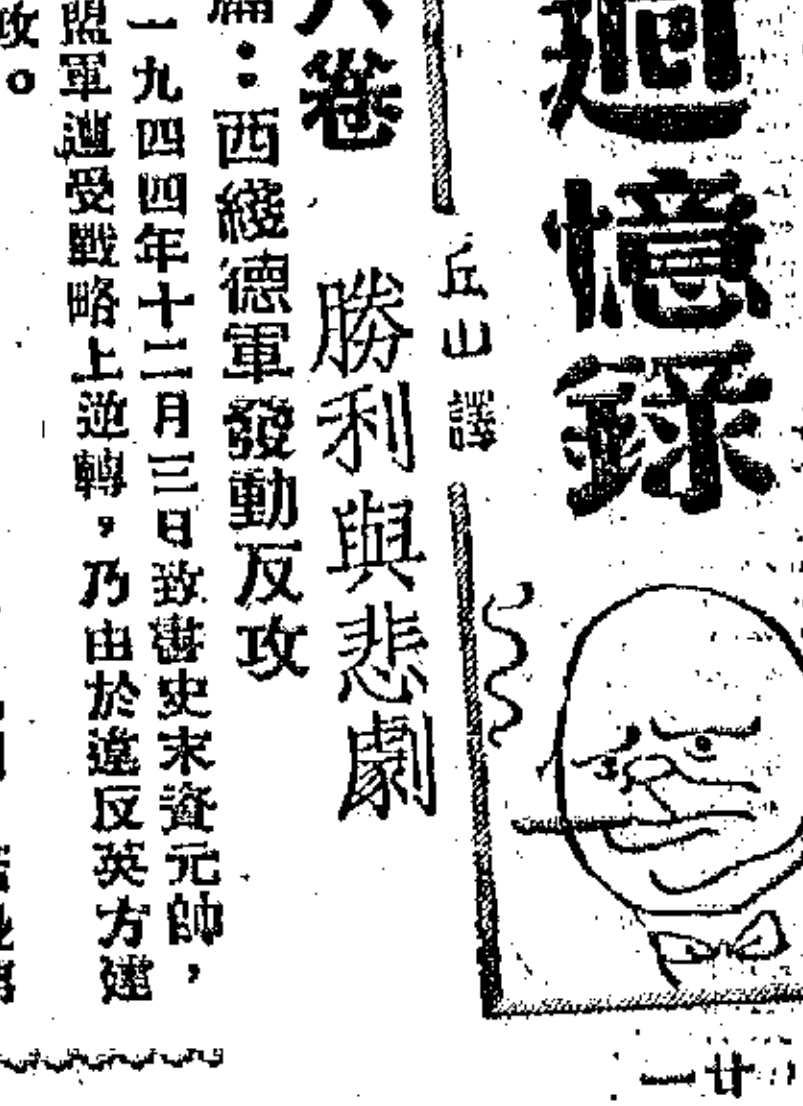 迴憶錄
廿一
丘山譯
六卷 勝利與悲劇
篇：西綫德軍發動反攻
一九四四年十二月三日致書史末資元帥，
盟軍遭受戰略上逆轉，乃由於違反英方建
攻。